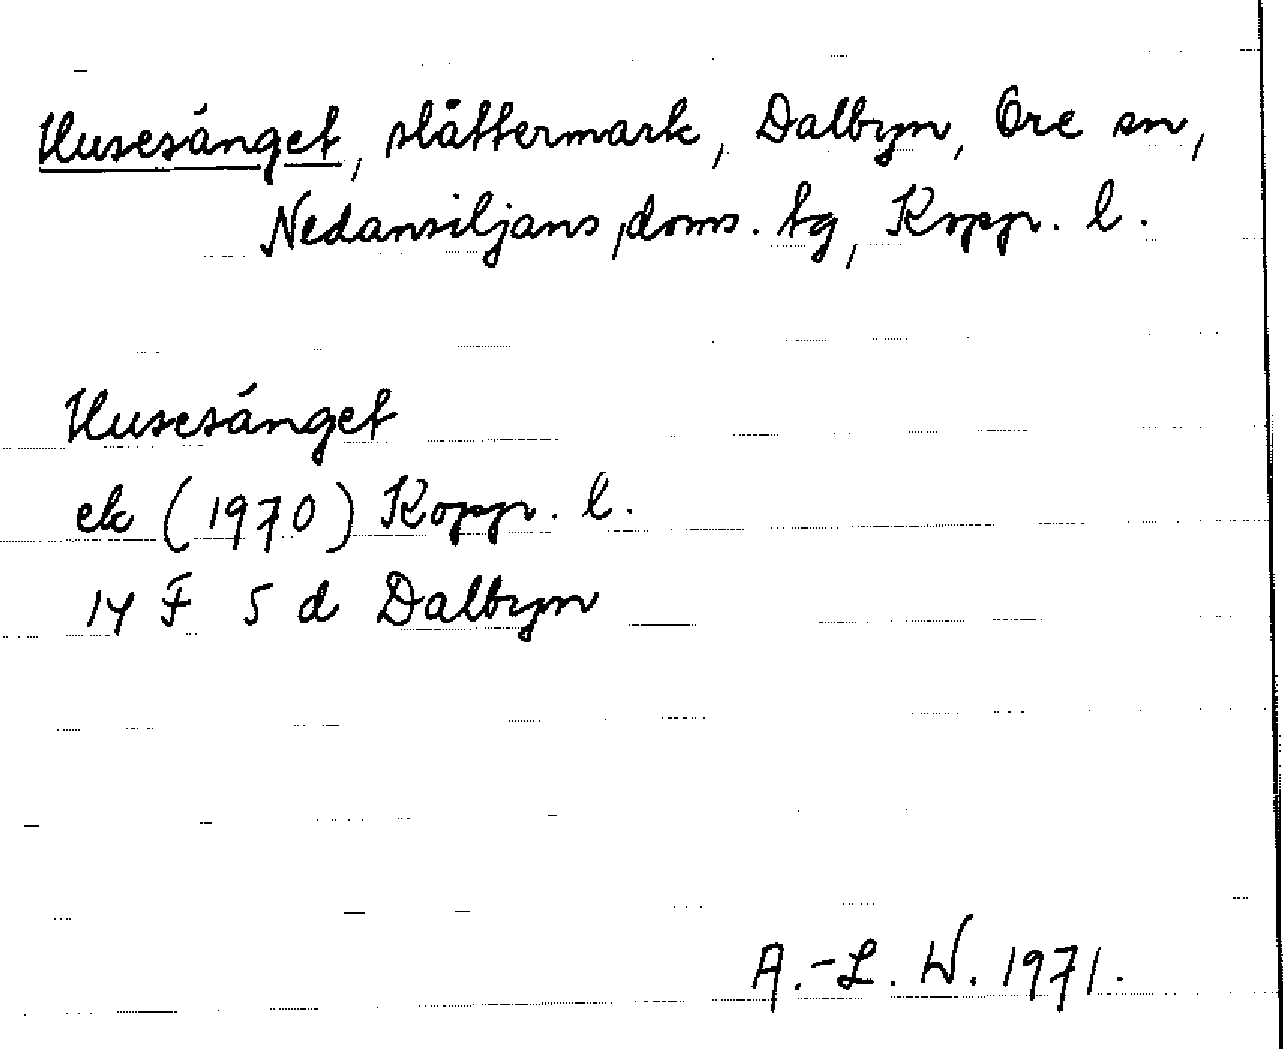 Husesänget, slåttermark, Dalbyn, Ore sn,
Nedansiljans doms. tg, Kopp. l.
Husesänget
ek (1970) Kopp. l.
14 F 5 d Dalbyn
A.-L. W. 1971.